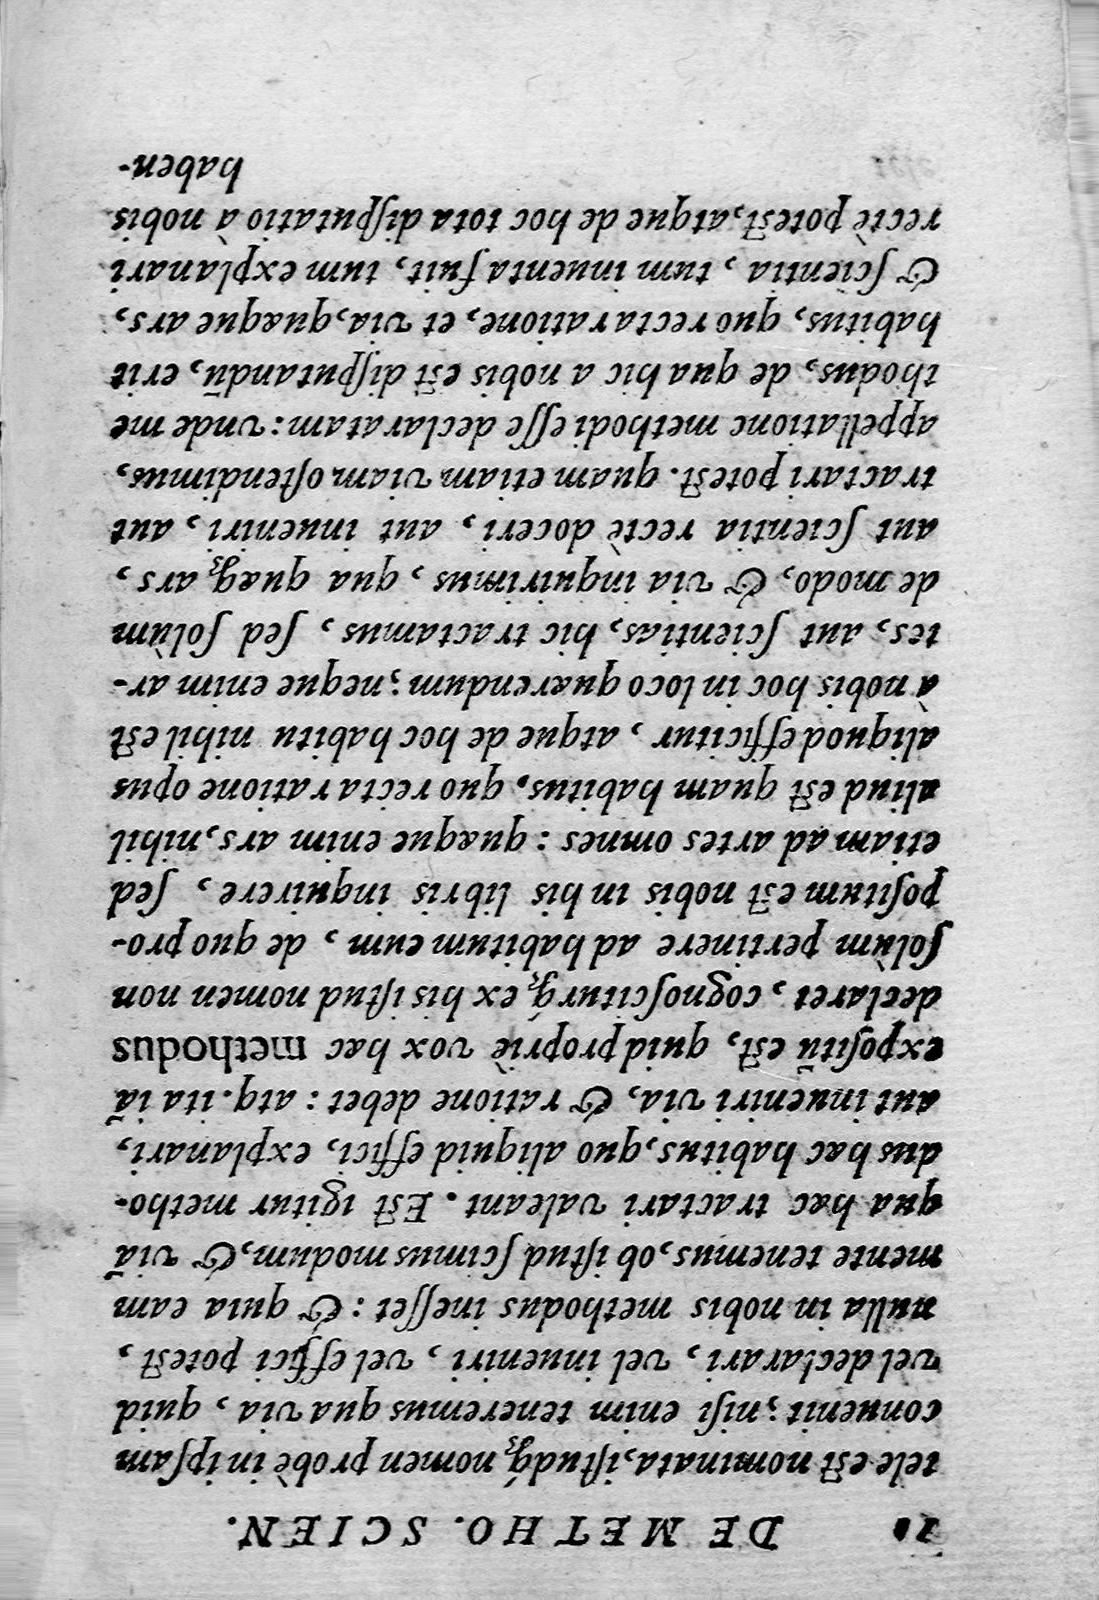 DE METHO. SCIEN.
tele est nominata, istudq́; nomen probè in ipsam
conuenit; nisi enim teneremus qua via, quid
vel declarari, vel inueniri, vel effici potest,
nulla in nobis methodus inesset: & quia eam
mente tenemus, ob istud scimus modum, & viã
qua hæc tractari valeant. Est igitur metho-
dus hæc habitus, quo aliquid effici, explanari,
aut inueniri via, & ratione debet: atq. ita iã
expositũ est, quid propriè vox hæc methodus
declaret, cognosciturq́; ex his istud nomen non
solùm pertinere ad habitum eum, de quo pro-
positum est nobis in his libris inquirere, sed
etiam ad artes omnes: quæque enim ars, nihil
aliud est quam habitus, quo recta ratione opus
aliquod efficitur, atque de hoc habitu nihil est
à nobis hoc in loco quærendum; neque enim ar-
tes, aut scientias, hic tractamus, sed solùm
de modo, & via inquirimus, qua quæq; ars,
aut scientia rectè doceri, aut inueniri, aut
tractari potest. quam etiam viam ostendimus,
appellatione methodi esse declaratam: vnde me
thodus, de qua hic a nobis est disputandũ, erit
habitus, quo recta ratione, et via, quæque ars,
& scientia, tum inuenta fuit, tum explanari
rectè potest, atque de hoc tota disputatio à nobis
haben-